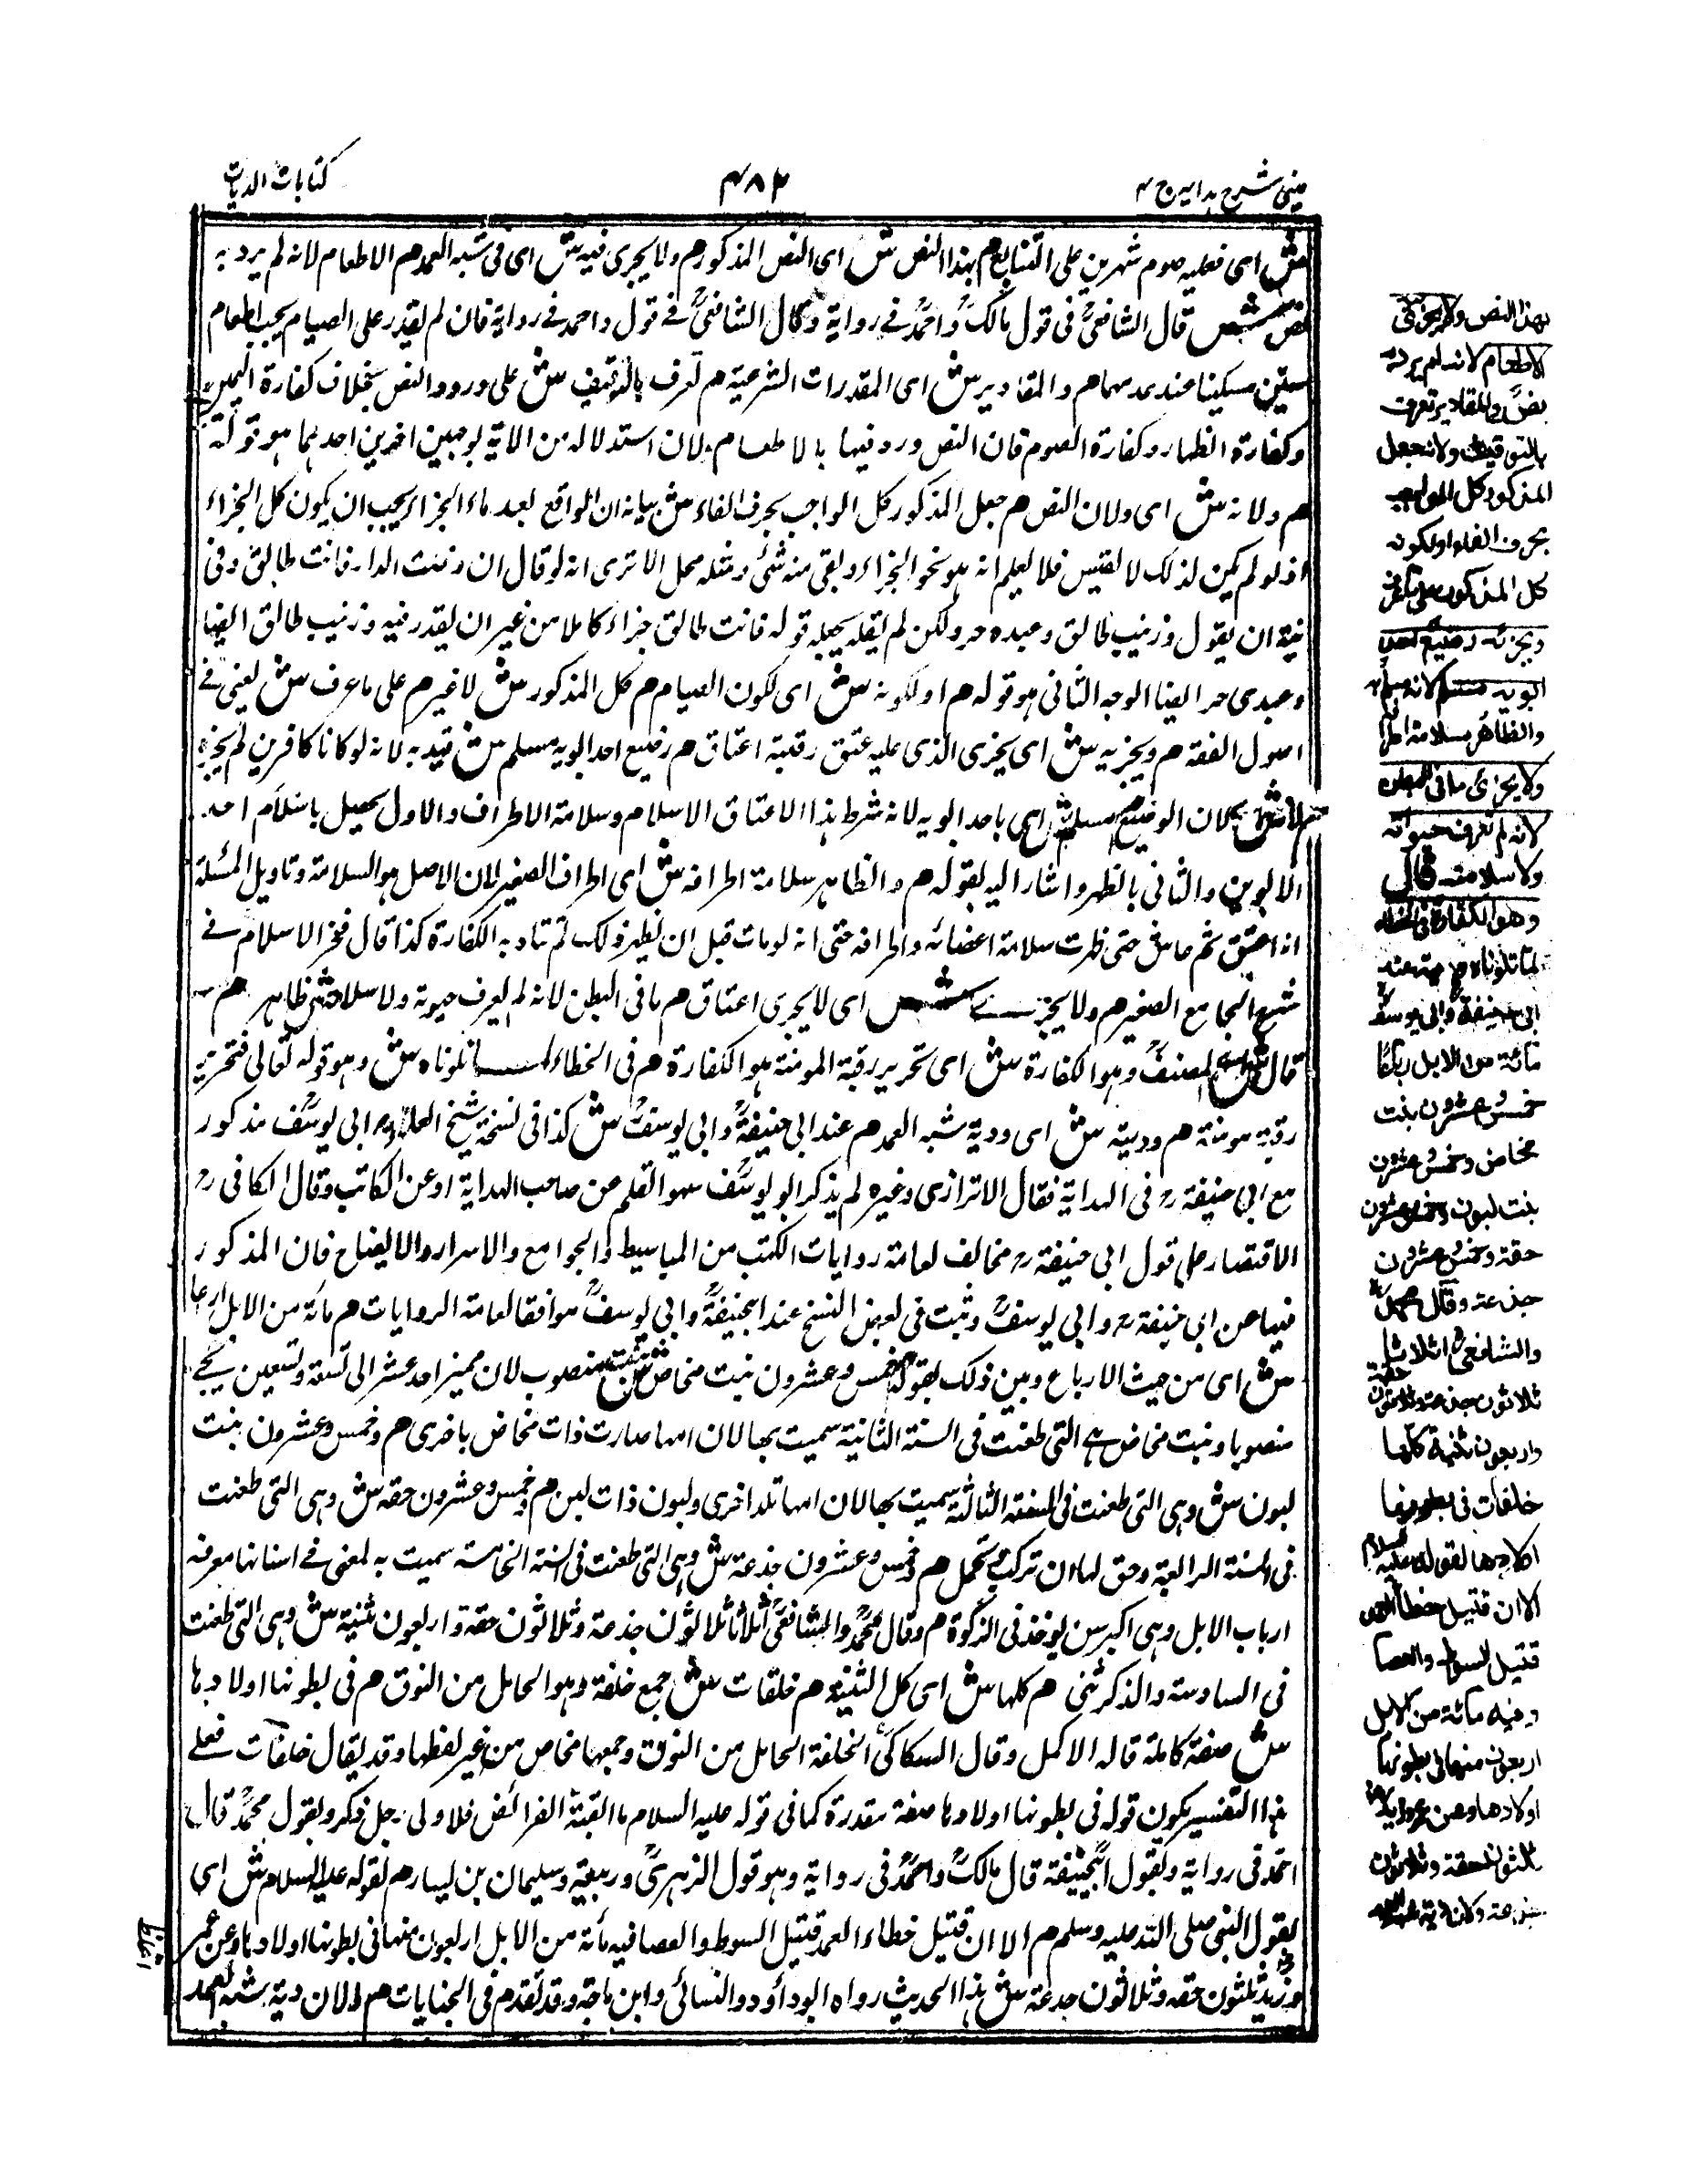 عینی شرح ہدایہ ج ۴
۴۸۲
کتاب الدیات
ش ای فعلیہ صوم شہرین علی التتابع م بہذا النص ش ای النص المذکور م ولا یجری فیہ ش ای فی شبہ العمد م الاطعام لانہ لم یرد بہ
نص ش قال الشافعیؒ فی قول مالکؒ و احمدؒ فی روایۃ وقال الشافعیؒ فی قول واحمد فی روایۃ فان لم یقدر علی الصیام یجب اطعام
ستین مسکینا عند عدمہما م والمقادیر ش ای المقدرات الشرعیۃ م تعرف بالتوقیف ش علی ورود النص بخلاف کفارۃ الیمین
وکفارۃ الظہار وکفارۃ الصوم فان النص ورد فیہا بالاطعام لان استدلالہ من الآیۃ بوجہین اخرین احدہما ہو قولہ
م ولانہ ش ای ولان النص م جعل المذکور کل الواجب بحرف الفاء ش بیانہ ان الواقع بعد فاء الجزاء یجب ان یکون کل الجزاء
اذ لو لم یکن لذلک لا لتبس فلا یعلم انہ ہو نحو الجزاء وبقی منہ شئ ومثلہ محل الا تری انہ لو قال ان دخلت الدار فانت طالق وفی
نیۃ ان یقول وزینب طالق وعبدہ حر ولکن لم یقلہ یجعلہ قولہ فانت طالق جزاء کاملا من غیر ان یقدر فیہ وزینب طالق ایضا
وعبدی حر ایضا الوجہ الثانی ہو قولہ م او لکونہ ش ای لکون الصیام م کل المذکور ش لا غیر م علی ما عرف ش یعنی فی
اصول الفقہ م ویجزیہ ش ای یجزی الذی علیہ عتق رقبۃ اعتاق م رضیع احد ابویہ مسلم ش قید بہ لانہ لو کانا کافرین لم یجزہ
م لانہ ش لان الرضیع م مسلم ش ای باحد ابویہ لانہ شرط ہذا الاعتاق الاسلام وسلامۃ الاطراف والاول یحصل باسلام احد
الابوین والثانی بالظہر واشار الیہ بقولہ م والظاہر سلامۃ اطرافہ ش ای اطراف الصغیر لان الاصل ہو السلامۃ وتاویل المسئلۃ
انہ اعتق ثم عاش حتی ظہرت سلامۃ اعضائہ واطرافہ حتی انہ لو مات قبل ان یظہر ذلک لم تتاد بہ الکفارۃ کذا قال فخر الاسلام فی
شرح الجامع الصغیر م ولا یجزی ش ای لا یجری اعتاق م ما فی البطن لانہ لم یعرف حیوتہ ولا سلامتہ ش ظاہر م
قال ش ای المصنفؒ وہو الکفارۃ ش ای تحریر رقبۃ المومنۃ ہو الکفارۃ م فی الخطاء لما تلوناہ ش وہو قولہ تعالی فتحریر
رقبۃ مومنۃ م ودیتہ ش ای ودیۃ شبہ العمد م عند ابی حنیفۃؒ وابی یوسفؒ ش کذا فی نسخۃ شیخ العلاء ابی یوسفؒ مذکور
مع ابی حنیفۃ رح فی الہدایۃ فقال الاترازی وغیرہ لم یذکر ابو یوسفؒ سہو القلم من صاحب الہدایۃ او عن الکاتب وقال الکافی رح
الاقتصار علی قول ابی حنیفۃ رح مخالف لعامۃ روایات الکتب من المباسیط والجوامع والاسرار والایضاح فان المذکور
فیہا عن ابی حنیفۃ رح وابی یوسفؒ وثبت فی بعض النسخ عند ابیحنیفۃؒ وابی یوسفؒ موافقا لعامۃ الروایات م مائۃ من الابل ارباعا
ش ای من حیث الارباع وبین ذلک بقولہ م خمس وعشرون بنت مخاض ش بنت منصوب لان ممیز احد عشر الی تسعۃ وتسعین یجئ
منصوبا وبنت مخاض ہی التی طعنت فی السنۃ الثانیۃ سمیت بہا لان امہا صارت ذات مخاض باخری م وخمس وعشرون بنت
لبون ش وہی التی طعنت فی السنۃ الثالثۃ سمیت بہا لان امہا تلد اخری ولبون ذات لبن م وخمس وعشرون حقہ ش وہی التی طعنت
فی السنۃ الرابعۃ وحق لہا ان ترکب وتحمل م وخمس وعشرون جذعۃ ش وہی التی طعنت فی السنۃ الخامسۃ سمیت بہ لمعنی فی اسنانہا معرفہ
ارباب الابل وہی اکبر سن یوخذ فی الزکوۃ م وقال محمدؒ والشافعیؒ اثلاثا ثلاثون جذعۃ وثلاثون حقۃ واربعون ثنیۃ ش وہی التی طعنت
فی السادسۃ والذکر ثنی م کلہا ش ای کل الثنیۃ م خلفات ش جمع خلفۃ وہو الحامل من النوق م فی بطونہا اولادہا
ش صفۃ کاملۃ قالہ الاکمل وقال السکاکیؒ الخلفۃ الحامل من النوق وجمعہا مخاض من غیر لفظہا وقد یقال خلفات فعلی
ہذا التفسیر یکون قولہ فی بطونہا اولادہا صفۃ مقدرۃ کما فی قولہ علیہ السلام ما ابقتہ الفرائض فلاولی رجل ذکر وبقول محمدؒ قال
احمد فی روایۃ وبقول ابیحنیفۃ قال مالکؒ واحمدؒ فی روایۃ وہو قول الزہریؒ وربیعۃ وسلیمان بن یسار م لقولہ علیہ السلام ش ای
لقول النبی صلی اللہ علیہ وسلم م الا ان قتیل خطاء العمد قتیل السوط والعصا فیہ مأۃ من الابل اربعون منہا فی بطونہا اولادہا وعن عمر
وزید ثلثون حقہ وثلاثون جذعۃ ش ہذا الحدیث رواہ ابوداؤد والنسائی وابن ماجۃ وقد تقدم فی الجنایات م ولان دیۃ شبہ العمد
بھذا النص ولا یجزئ فیہ
الاطعام لانہ لم یرد بہ
نصٌ والمقادیر تعرف
بالتوقیف ولانہ جعل
المذکور کل الواجب
بحرف الفاء او لکونہ
کل المذکور علی ما عرف
ویجزئہ رضیع احد
ابویہ مسلم لانہ مسلم بہ
والظاھر سلامۃ اطرافہ
ولا یجزئ ما فی البطن
لانہ لم تعرف حیوتہ
ولا سلامتہ قال
وھو الکفارۃ فی الخطاء
لما تلوناہ ودیتہ عند
ابی حنیفۃ وابی یوسف
مائۃ من الابل ارباعا
خمس وعشرون بنت
مخاض وخمس وعشرون
بنت لبون وخمس وعشرون
حقۃ وخمس وعشرون
جذعۃ وقال محمد
والشافعی اثلاثا
ثلاثون جذعۃ وثلاثون حقۃ
واربعون ثنیۃ کلھا
خلفات فی بطونھا
اولادھا لقولہ علیہ السلام
الا ان قتیل خطأ العمد
قتیل السوط والعصا
وفیہ مائۃ من الابل
اربعون منھا فی بطونھا
اولادھا وعن عمر وزید
ثلثون حقۃ وثلاثون
جذعۃ ولان دیۃ شبہ العمد